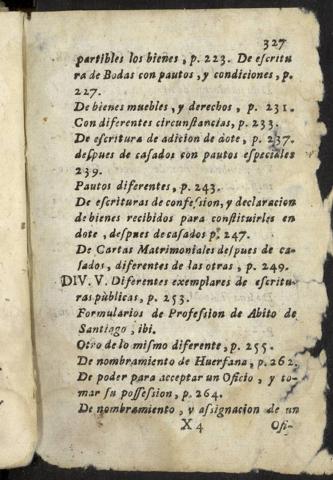 327
partibles los bienes, p. 223. De escritu
ra de Bodas con pautos, y condiciones, p.
227.
De bienes muebles, y derechos, p. 231.
Con diferentes circunſtancias, p. 233.
De escritura de adicion de dote, p. 237.
deſpues de caſados con pautos especiales
239.
Pautos diferentes, p. 243.
De escrituras de confeſſion, y declaracion
de bienes recibidos para conſtituirles en
dote, deſpues de caſados p. 247.
De Cartas Matrimoniales deſpues de ca-
ſados, diferentes de las otras, p. 249.
DIV. V. Diferentes exemplares de eſcritu-
ras pùblicas, p. 253.
Formularios de Profeſſion de Abito de
Santiago, ibi.
Otro de lo miſmo diferente, p. 255.
De nombramiento de Huerfana, p. 262.
De poder para acceptar un Oficio, y to-
mar ſu poſſeſſion, p. 264.
De nombramiento, y aſſignacion de un
X 4 Ofi-